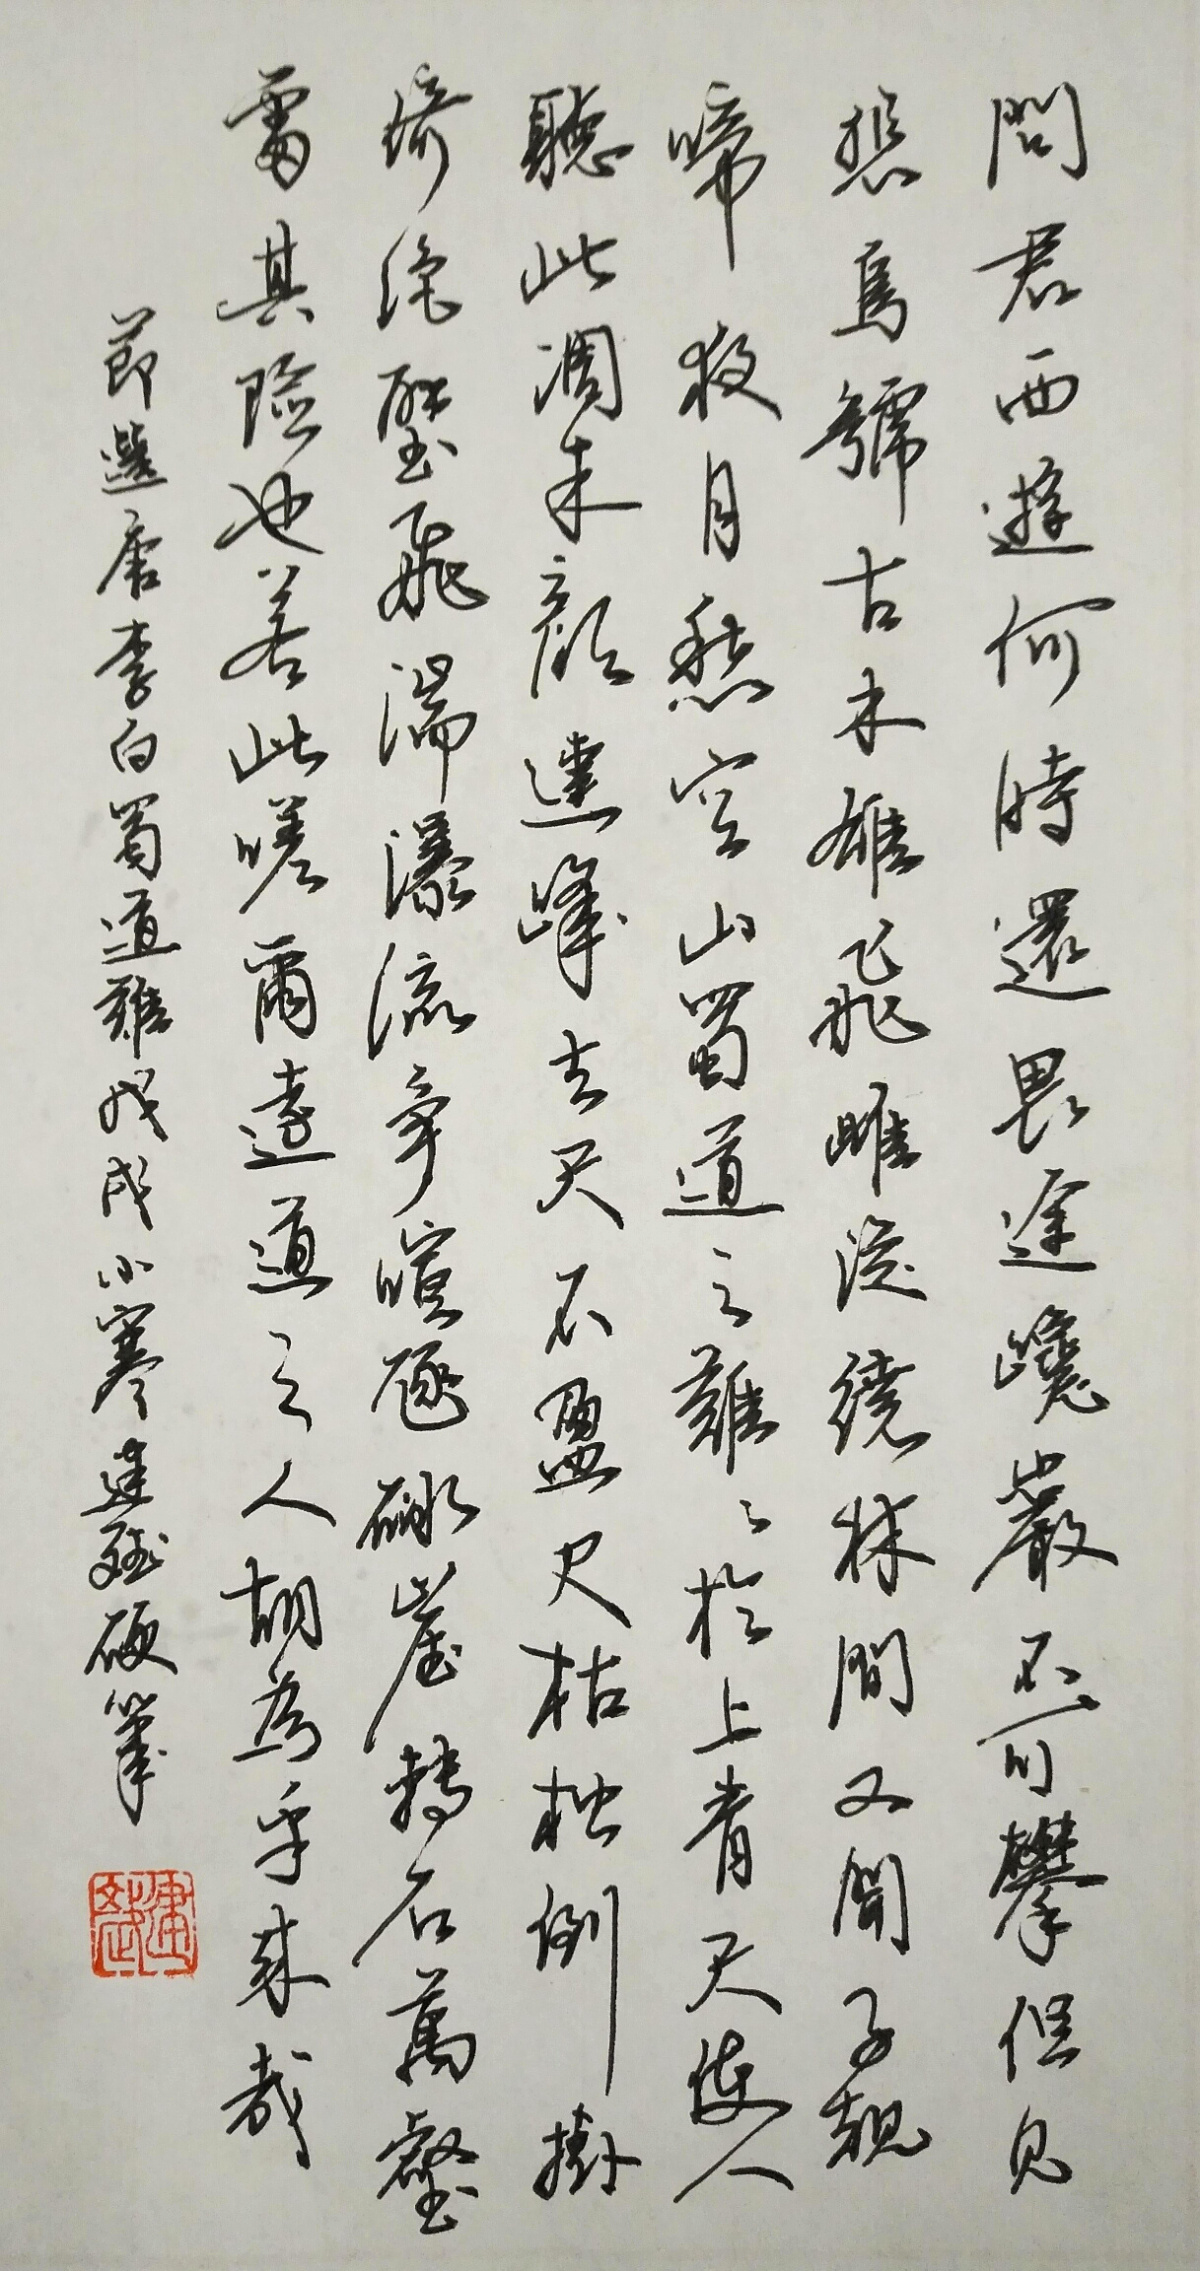 問君西遊何時還畏途巉巖不可攀但見
悲鳥號古木雄飛雌從繞林間又聞子規
啼夜月愁空山蜀道之難々於上青天使人
聽此凋朱顏連峰去天不盈尺枯松倒掛
倚絕壁飛湍瀑流爭喧豗砯崖轉石萬壑
雷其險也若此嗟爾遠道之人胡為乎來哉
節選唐李白蜀道難戊戌小寒建斌硬筆
建斌